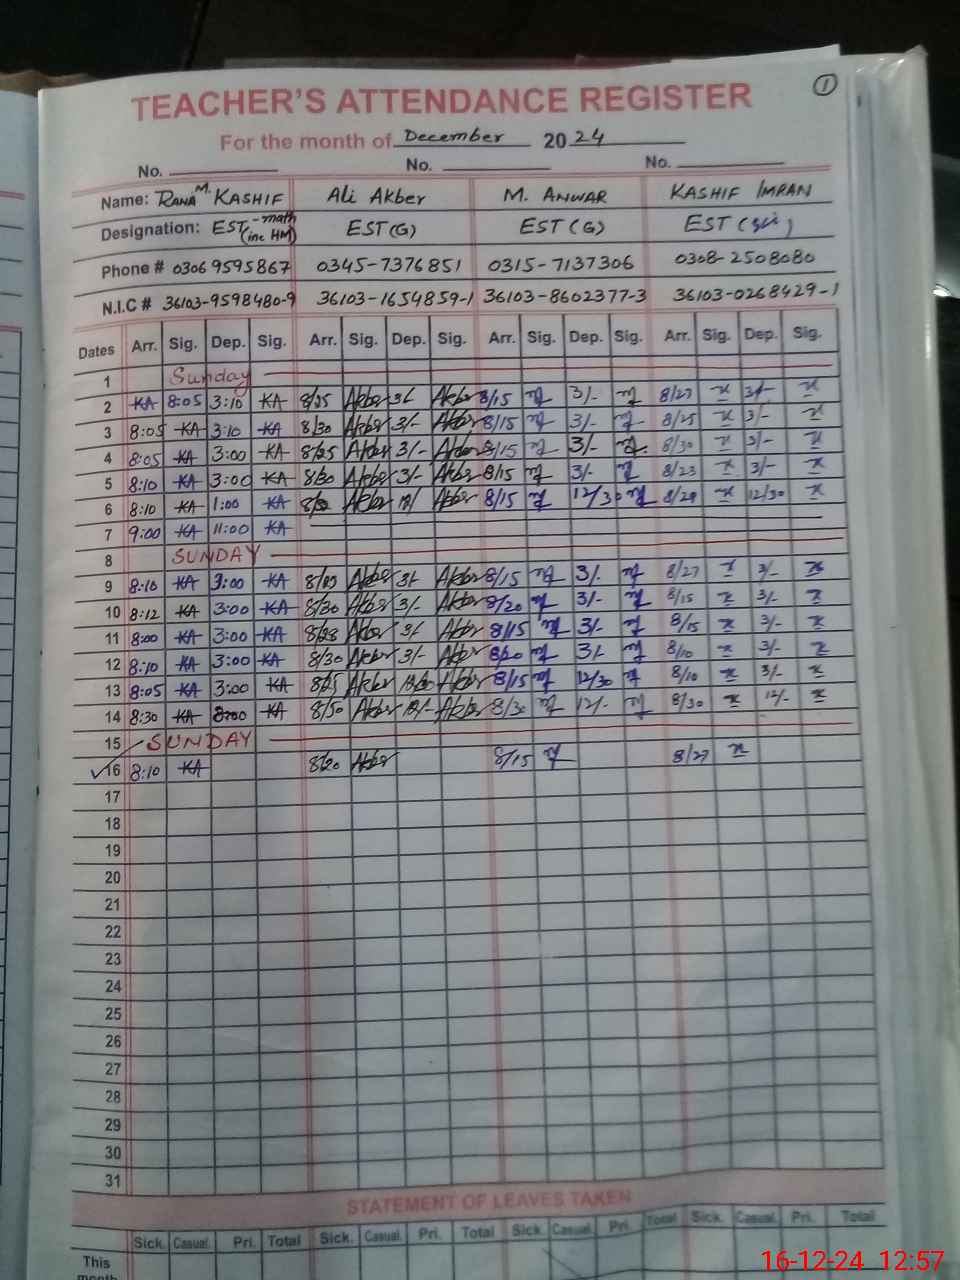 ①
TEACHER'S ATTENDANCE REGISTER
For the month of December 2024
No. No. No.
Name: RANA M. KASHIF Ali Akber M. ANWAR KASHIF IMRAN
Designation: EST-math (inc HM) EST (G) EST (G) EST (sci)
Phone # 0306 9595867 0345-7376851 0315-7137306 0308-2508080
N.I.C # 36103-9598480-9 36103-1654859-1 36103-8602377-3 36103-0268429-1
Dates Arr. Sig. Dep. Sig. Arr. Sig. Dep. Sig. Arr. Sig. Dep. Sig. Arr. Sig. Dep. Sig.
1 Sunday
2 KA 8:05 3:10 KA Akber 3/- Akber 8/15 3/- 8/27 3/-
3 8:05 KA 3:10 KA 8/30 Akber 3/- Akber 8/15 3/- 8/25 3/-
4 8:05 KA 3:00 KA 8/25 Akber 3/- Akber 8/15 3/- 8/30 3/-
5 8:10 KA 3:00 KA 8/30 Akber 3/- Akber 8/15 3/- 8/23 3/-
6 8:10 KA 1:00 KA Akber Akber 8/15 12/30 12/30
7 9:00 KA 11:00 KA
8 SUNDAY
9 8:10 KA 3:00 KA Akber 3/- Akber 8/15 3/- 8/27 3/-
10 8:12 KA 3:00 KA 8/30 Akber 3/- Akber 8/20 3/- 8/15 3/-
11 8:00 KA 3:00 KA Akber 3/- Akber 8/15 3/- 8/15 3/-
12 8:10 KA 3:00 KA 8/30 Akber 3/- Akber 8/20 3/- 8/10 3/-
13 8:05 KA 3:00 KA 8/25 Akber Akber 8/15 12/30 8/10 3/-
14 8:30 KA KA 8/50 Akber Akber 8/30 12/- 8/30 12/-
15 SUNDAY
✓16 8:10 KA 8/20 Akber 8/15 8/27
17
18
19
20
21
22
23
24
25
26
27
28
29
30
31
STATEMENT OF LEAVES TAKEN
Sick. Casual. Pri. Total Sick. Casual. Pri. Total Sick. Casual. Pri. Total Sick. Casual. Pri. Total
This
month
16-12-24 12:57